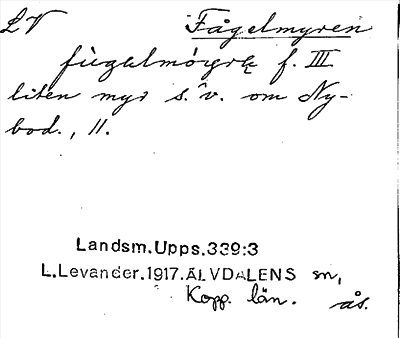 LV Fågelmyren
f. III
liten myr s. v. om Ny-
bod., 11.
Landsm.Upps.339:3
L.Levander.1917.ÄLVDALENS sn,
Kopp. län. ås.